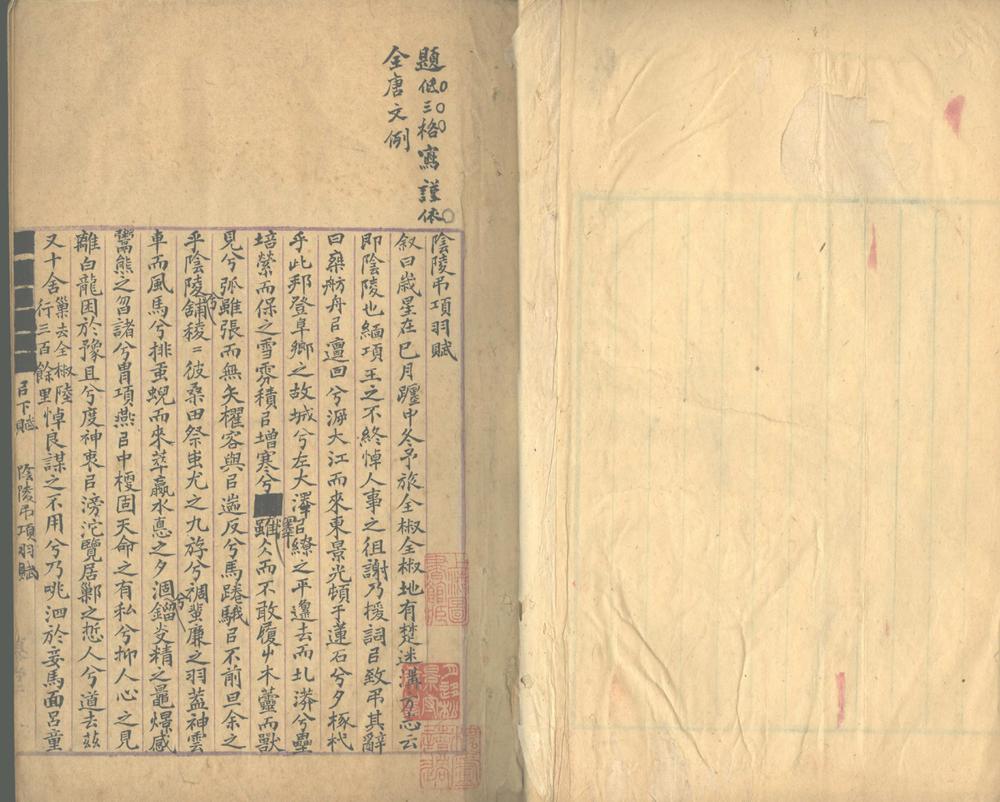 題低三格寫謹依
全唐文例
陰陵弔項羽賦
叙曰歲星在巳月躔中冬予旅全椒全椒地有楚迷溝方志云
即陰陵也緬項王之不終悼人事之徂謝乃援詞㠯致弔其辭
曰橤舫舟㠯邅回兮泝大江而來東景光頓于蓮石兮夕椓杙
乎此邦登阜鄉之故城兮左大澤㠯繚之平邍去而北漭兮壘
培縈而保之雪雰積㠯增寒兮雖仌而不敢履屮木虀而獸
見兮弧雖張而無矢櫂容與㠯遄反兮馬踡䮗㠯不前旦余之
乎陰陵兮舖稜=彼桑田祭蚩尤之九斿兮裯蜚廉之羽葢神雲
車而風馬兮排蜺而來萃羸水惪之夕涸兮鎦炎精之鼂爆感
鬻熊之曶諸兮胄項燕㠯中櫌固天命之有私兮抑人心之見
離白龍困於豫且兮度神衷㠯滂沱覽居鄛之悊人兮道去茲
又十舍巢去全椒陸行三百餘里悼良謀之不用兮乃咷泗於妾馬面呂童
㠯下賦
陰陵弔項羽賦